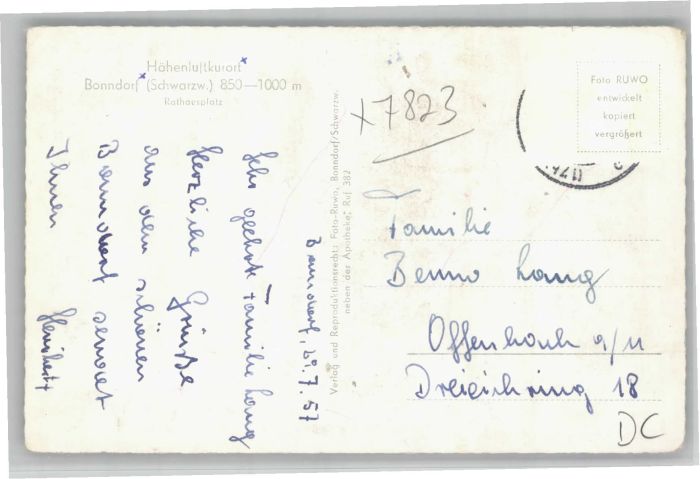 Höhenluftkurort
Bonndorf (Schwarzw.) 850—1000 m
Rathausplatz
Bonndorf, 20.7.57
Sehr geehrte Familie Lang
Herzliche Grüße
aus dem schönen
Bonndorf sendet
Ihnen
Verlag und Reproduktionsrecht: Foto-Ruwo, Bonndorf/Schwarzw.
neben der Apotheke, Ruf 382
x7823
Foto RUWO
entwickelt
kopiert
vergrößert
Familie
Benno Lang
Offenbach a/M
Dreieichring 18
DC